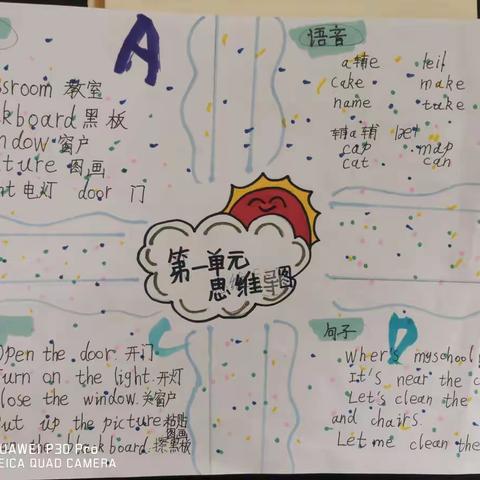 A
ssroom 教室
kboard 黑板
ndow 窗户
ture 图画
ht 电灯 door 门
语音
a辅e /eɪ/
cake make
name take
辅a辅 /æ/
cap map
cat can
第一单元
思维导图
C
Open the door. 开门
Turn on the light. 开灯
lose the window. 关窗户
ut up the picture 粘贴图画
the blackboard. 擦黑板
句子
D
Wher's myschool
It's near the c
Let's clean the
and chairs.
Let me clean the
HUAWEI P30 Pro
LEICA QUAD CAMERA